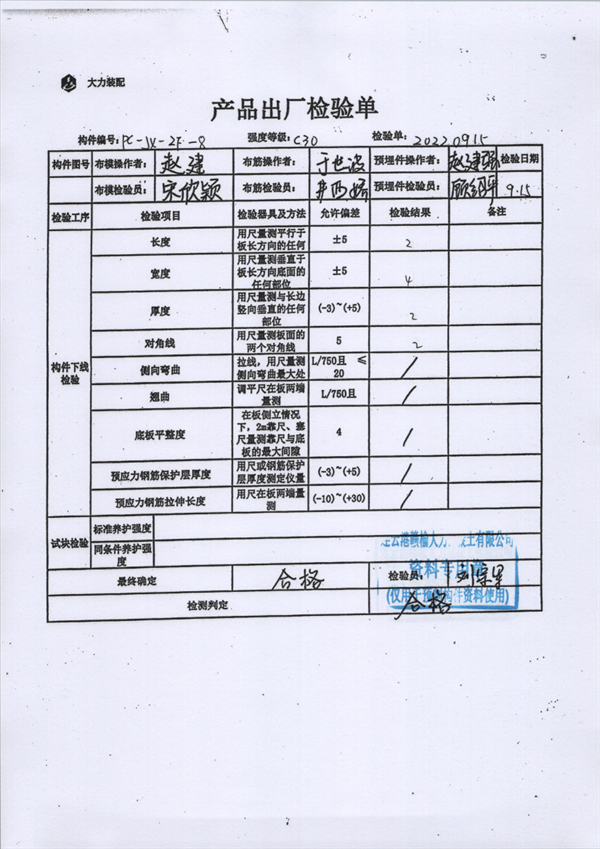 大力装配
产品出厂检验单
构件编号: PC-JX-2F-8 强度等级: C30 检验单: 20220915
构件图号 布模操作者: 赵建 布筋操作者: 于世波 预埋件操作者: 赵建强 检验日期
布模检验员: 宋欣颖 布筋检验员: 预埋件检验员: 9.15
检验工序 检验项目 检验器具及方法 允许偏差 检验结果 备注
构件下线检验
长度 用尺量测平行于板长方向的任何 ±5 2
宽度 用尺量测垂直于板长方向底面的任何部位 ±5 4
厚度 用尺量测与长边竖向垂直的任何部位 (-3)~(+5) 2
对角线 用尺量测板面的两个对角线 5 2
侧向弯曲 拉线，用尺量测侧向弯曲最大处 L/750且 ≤20 /
翘曲 调平尺在板两端量测 L/750且 /
底板平整度 在板侧立情况下，2m靠尺、塞尺量测靠尺与底板的最大间隙 4 /
预应力钢筋保护层厚度 用尺或钢筋保护层厚度测定仪量 (-3)~(+5) /
预应力钢筋拉伸长度 用尺在板两端量测 (-10)~(+30) /
试块检验 标准养护强度
同条件养护强度
连云港赣榆大力 土有限公司
资料专用
(仅用于 资料使用)
最终确定 合格 检验员:
检测判定 合格